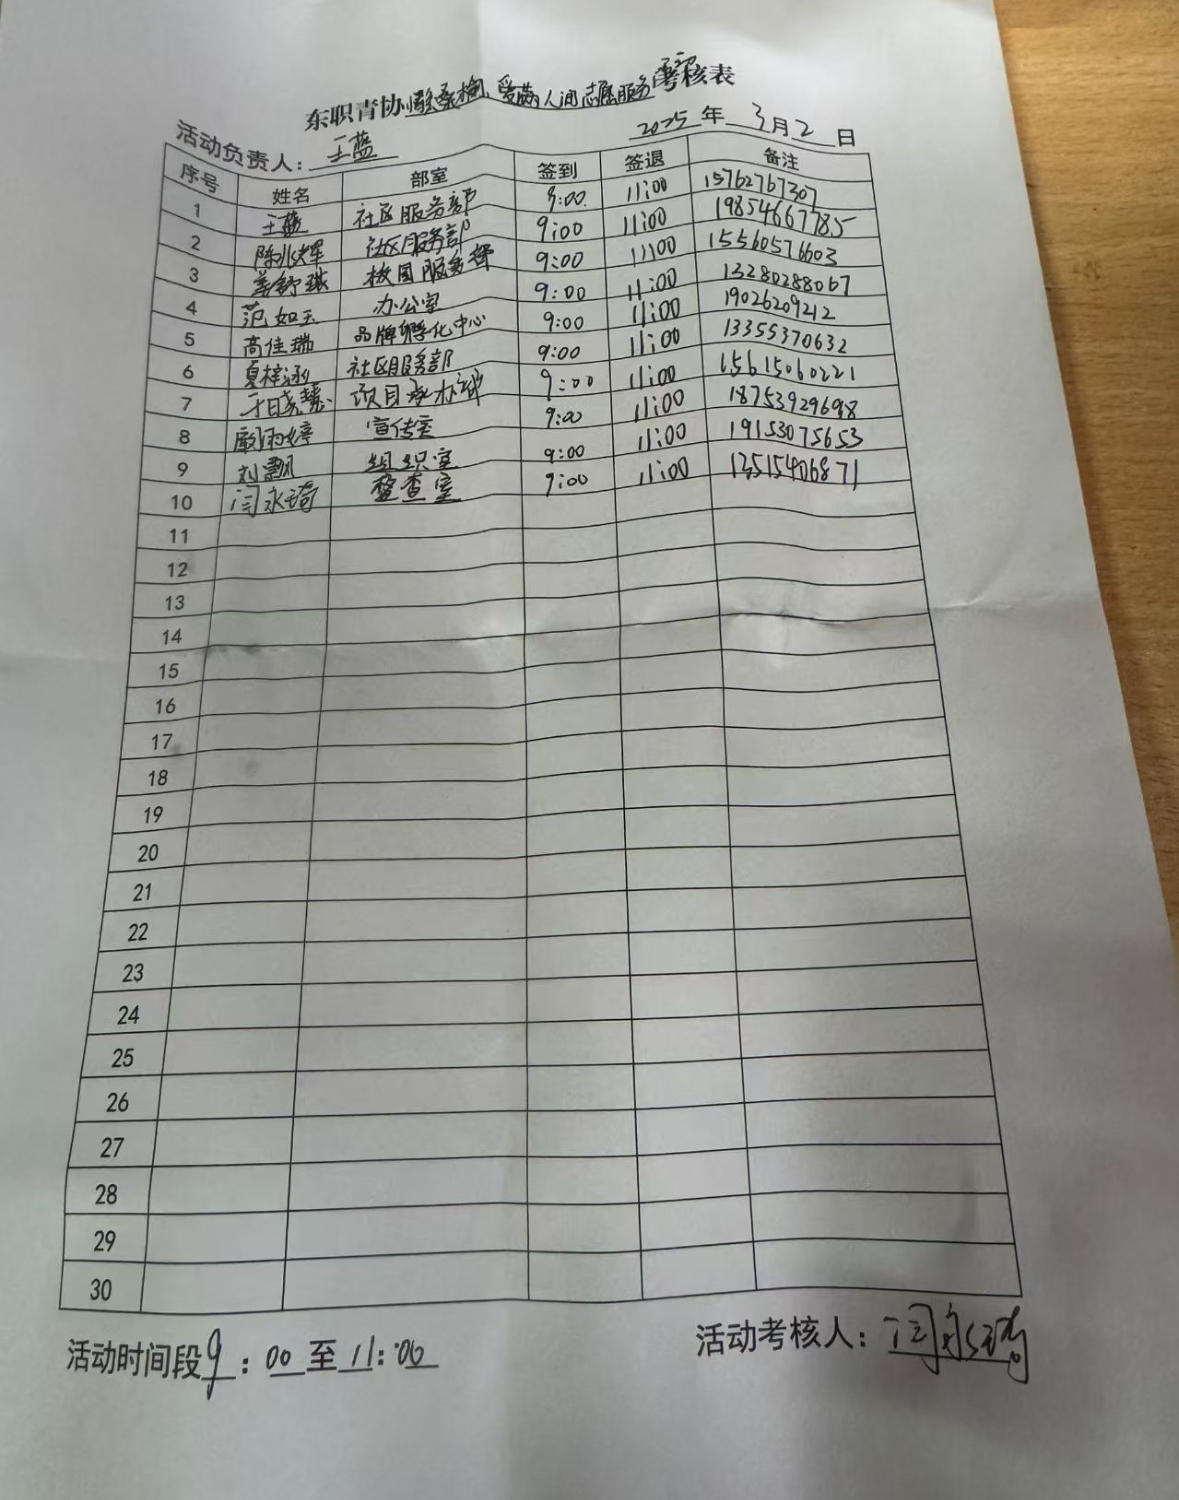 东职青协暖桑榆、爱满人间志愿服务考核表
活动负责人：王蓝 2025年3月2日
序号 姓名 部室 签到 签退 备注
1 王蓝 社区服务部 9:00 11:00 15762767307
2 陈兆辉 社区服务部 9:00 11:00 19854667785
3 姜舒琪 校园服务部 9:00 11:00 15560576603
4 范如玉 办公室 9:00 11:00 13280288067
5 高佳瑞 品牌孵化中心 9:00 11:00 19026209212
6 夏梓涵 社区服务部 9:00 11:00 13355370632
7 于晓慧 项目承办部 9:00 11:00 15615060221
8 雨婷 宣传室 9:00 11:00 18753929698
9 刘灏 组织室 9:00 11:00 19153075653
10 闫永琦 督查室 9:00 11:00 13515406871
11
12
13
14
15
16
17
18
19
20
21
22
23
24
25
26
27
28
29
30
活动时间段9：00至11：00 活动考核人：闫永琦